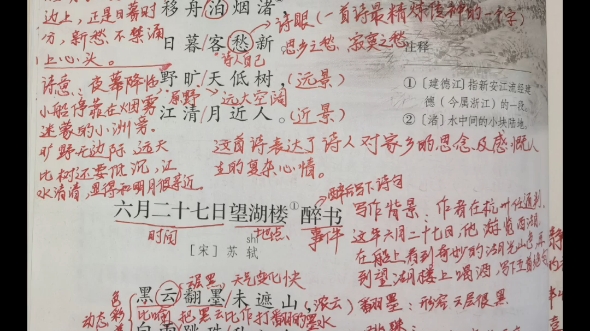 边上,正是日暮时
移舟泊烟渚
诗眼(一首诗最精炼传神的一个字)
分,新愁不禁涌
日暮/客愁新
思乡之愁、寂寞之愁
上心头。
诗人自己
注释
诗意:夜幕降临
野旷/天低树,(远景)
①〔建德江〕指新安江流经建
小船停靠在烟雾
原野
远大空阔
德(今属浙江)的一段。
迷蒙的小洲旁。
江清/月近人。(近景)
②〔渚〕水中间的小块陆地。
旷野无边际,远天
这首诗表达了诗人对家乡的思念及感慨人
比树还要低沉,江
生的复杂心情。
水清清,显得和明月很亲近。
醉后写下诗句
六月二十七日望湖楼①醉书
时间
地点
事件
写作背景:作者在杭州任通判,
[宋]苏 轼
shì
这年六月二十七日,他游览西湖,
在船上看到奇妙的湖光山色,再
到望湖楼上喝酒,写下
很黑
天气变化快
黑云/翻墨/未遮山(浓云)
翻墨:形容云层很黑
动态
比喻
把黑云比作打翻的墨水